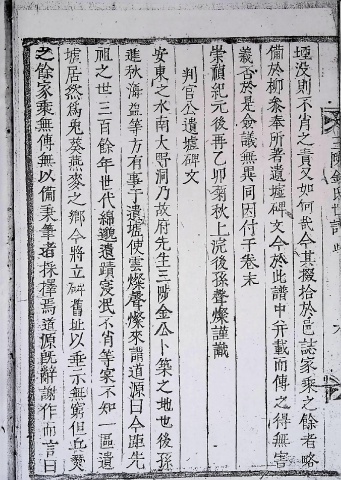 堙没則不肖之責又如何哉今其掇拾於邑誌家乘之餘者略
備於柳叅奉所著遺墟碑文今於此譜中并載而傳之得無害
義否於是僉議無異同因付于卷末
崇禎紀元後再乙卯菊秋上浣後孫聲燦謹識
判官公遺墟碑文
安東之水南大賢洞乃故府先生三陟金公卜築之地也後孫
進秋海益等方有事于遺墟使雲燦聲燦來請道源曰今距先
祖之世三百餘年世代綿邈遺蹟寖泯不肖等寀不知一區遺
墟居然爲兎葵燕麥之鄉今將立碑舊址以垂示無窮但兵燹
之餘家乘無傳無以備秉筆者採擇焉道源旣辭謝作而言曰
三陟金氏世譜